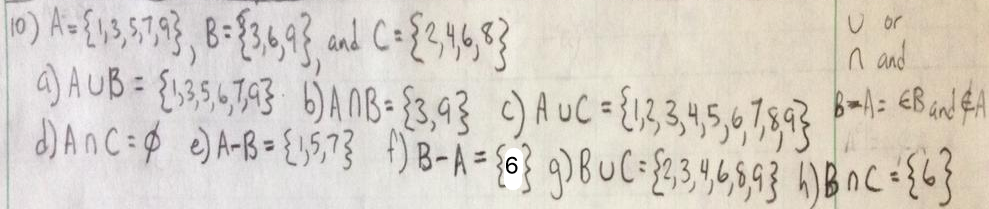 10) A={1,3,5,7,9}, B={3,6,9}, and C={2,4,6,8}
∪ or
∩ and
a) A∪B = {1,3,5,6,7,9} b) A∩B={3,9} c) A∪C={1,2,3,4,5,6,7,8,9}
B-A= ∈B and ∉A
d) A∩C=∅ e) A-B={1,5,7} f) B-A={6} g) B∪C={2,3,4,6,8,9} h) B∩C={6}